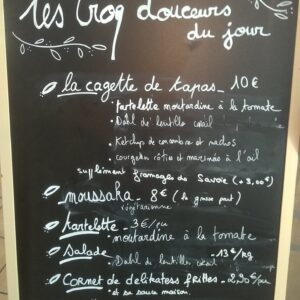 les Croq douceurs
du jour
la cagette de tapas - 10€
tartelette moutardine à la tomate
• Dahl de lentille corail
• Ketchup de concombre et radis
• courgette rôtie et marinée à l'ail
supplément fromages de Savoie (+3,00€)
moussaka - 8€ (la grosse part)
végétarienne
tartelette - 3€/pu
moutardine à la tomate
salade - 13€/kg
Dahl de lentilles corail
Cornet de délikatess frites - 2,90€/pu
• et sa sauce maison.